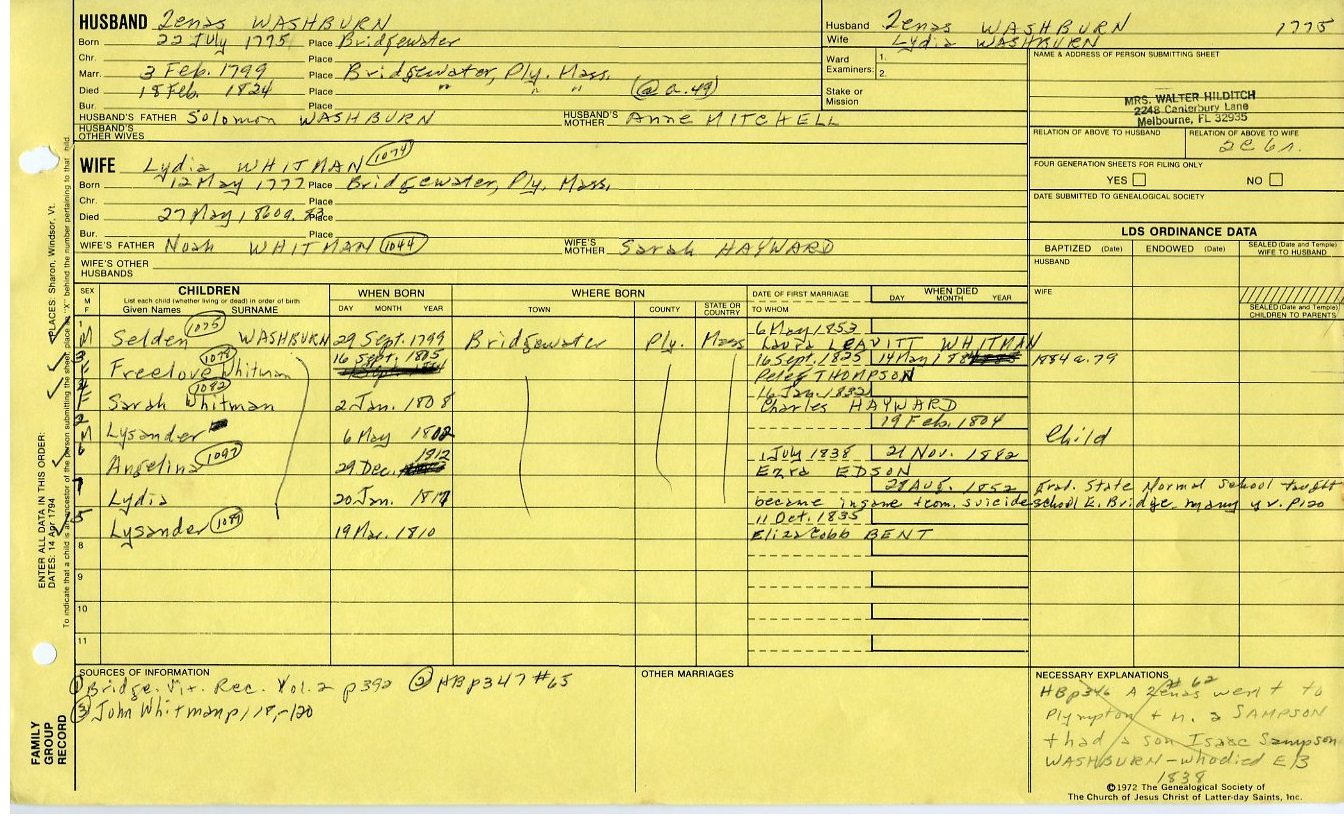 HUSBAND Zenas WASHBURN
Born 22 July 1775 Place Bridgewater
Chr. Place
Marr. 3 Feb. 1799 Place Bridgewater, Ply. Mass.
Died 18 Feb. 1824 Place " " " (@ a. 49)
Bur. Place
HUSBAND'S FATHER Solomon WASHBURN HUSBAND'S MOTHER Anne MITCHELL
HUSBAND'S OTHER WIVES
Husband Zenas WASHBURN 1775
Wife Lydia WASHBURN
Ward Examiners: 1.
2.
Stake or Mission
NAME & ADDRESS OF PERSON SUBMITTING SHEET
MRS. WALTER HILDITCH
2248 Canterbury Lane
Melbourne, FL 32935
RELATION OF ABOVE TO HUSBAND RELATION OF ABOVE TO WIFE
2C 6r.
FOUR GENERATION SHEETS FOR FILING ONLY
YES NO
DATE SUBMITTED TO GENEALOGICAL SOCIETY
WIFE Lydia WHITMAN (1074)
Born 12 May 1777 Place Bridgewater, Ply. Mass.
Chr. Place
Died 27 May 1860 a. 83 Place
Bur. Place
WIFE'S FATHER Noah WHITMAN (1044) WIFE'S MOTHER Sarah HAYWARD
WIFE'S OTHER HUSBANDS
LDS ORDINANCE DATA
BAPTIZED (Date) ENDOWED (Date) SEALED (Date and Temple) WIFE TO HUSBAND
HUSBAND
WIFE
SEALED (Date and Temple) CHILDREN TO PARENTS
SEX M F CHILDREN WHEN BORN WHERE BORN DATE OF FIRST MARRIAGE WHEN DIED
List each child (whether living or dead) in order of birth
Given Names SURNAME DAY MONTH YEAR TOWN COUNTY STATE OR COUNTRY TO WHOM DAY MONTH YEAR
1 M Selden (1075) WASHBURN 29 Sept. 1799 Bridgewater Ply. Mass 6 May 1853
Laura LEAVITT WHITMAN
3 F Freelove Whitman (1078) 16 Sept. 1805 16 Sept. 1825 14 May 1884 1884 a. 79
Peleg THOMPSON
4 F Sarah Whitman (1082) 2 Jan. 1808 16 Jan. 1832
Charles HAYWARD
2 M Lysander 6 May 1802 19 Feb. 1804 Child
6 Angelina (1097) 29 Dec. 1912 1 July 1838 21 Nov. 1882
Ezra EDSON
7 Lydia 20 Jan. 1817 27 Aug. 1852 Grad. State Normal School taught
became insane + com. suicide school E. Bridge. many yr. p120
5 Lysander (1089) 19 Mar. 1810 11 Oct. 1835
Eliza Cobb BENT
8
9
10
11
SOURCES OF INFORMATION
① Bridge. Vit. Rec. Vol. 2 p392 ② HBp347 #65
③ John Whitman p118,-120
OTHER MARRIAGES
NECESSARY EXPLANATIONS
HBp346 A Zenas #62 went to
Plympton + m. a SAMPSON
+ had a son Isaac Sampson
WASHBURN - who died E/B
1838
©1972 The Genealogical Society of
The Church of Jesus Christ of Latter-day Saints, Inc.
ENTER ALL DATA IN THIS ORDER:
DATES: 14 Apr 1794 PLACES: Sharon, Windsor, Vt.
To indicate that a child is an ancestor of the person submitting the sheet, place an "X" behind the number pertaining to that child.
FAMILY GROUP RECORD